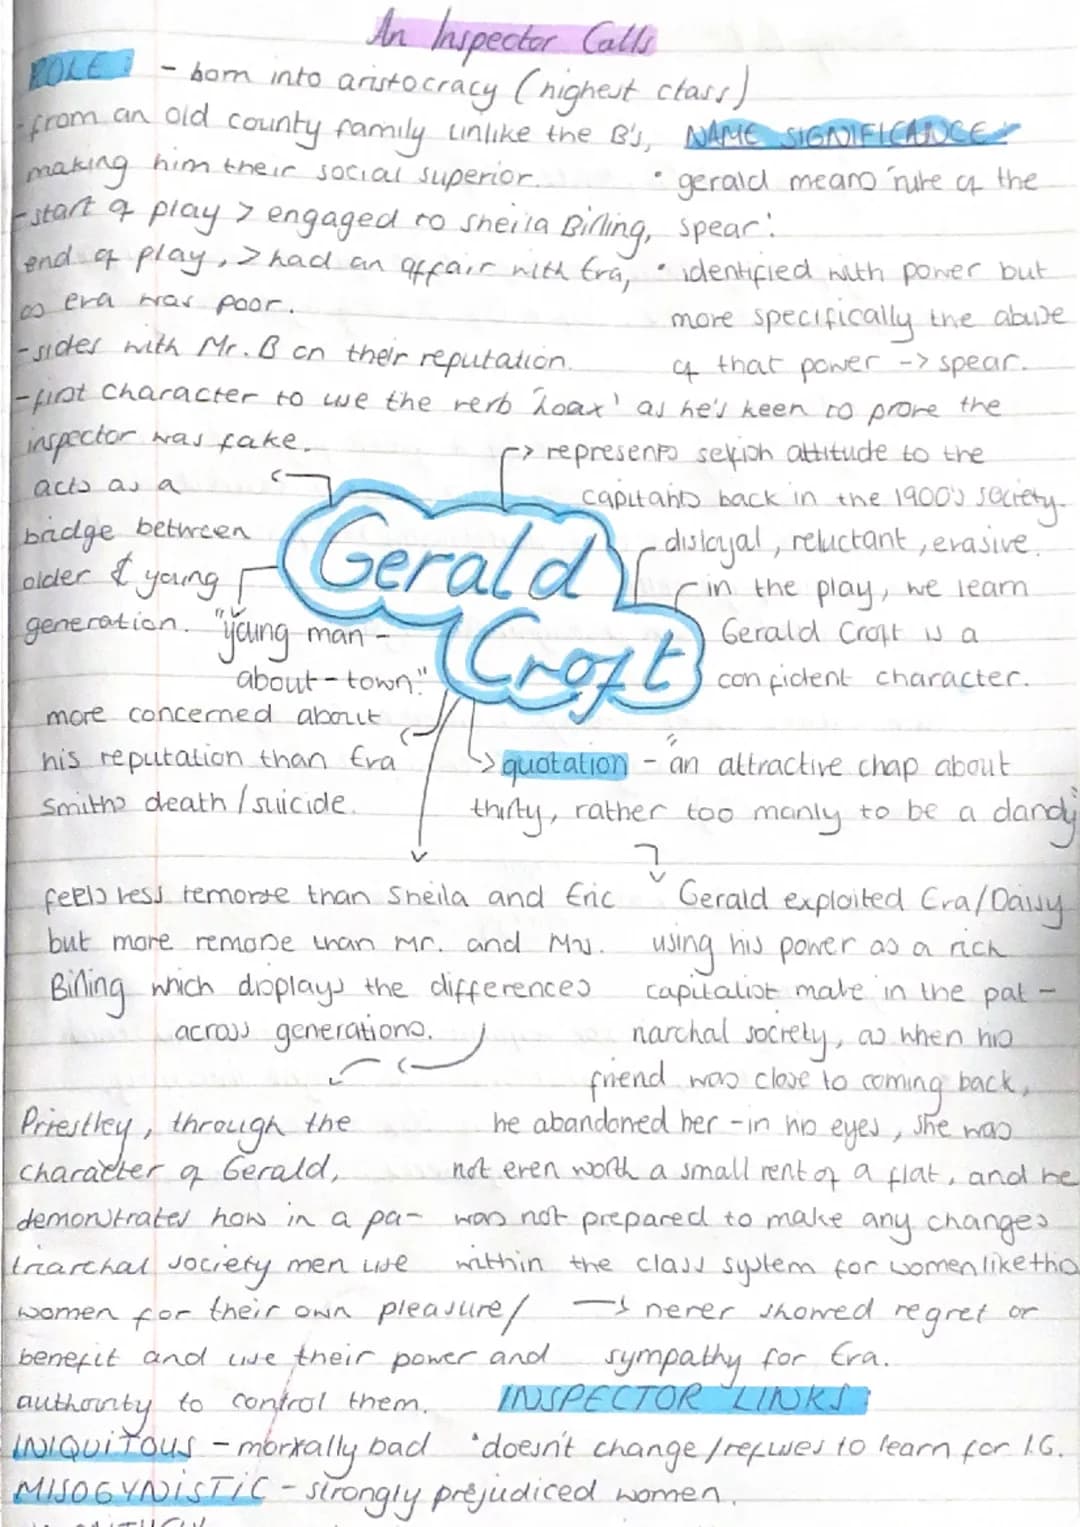 An Inspector Calls
ROLE:
- born into aristocracy (highest class)
- from an old county family unlike the B's,
making him their social superior.
- start of play > engaged to Sheila Birling,
end of play, > had an affair with Eva,
as eva was poor.
- sides with Mr. B on their reputation.
- first character to use the verb 'hoax' as he's keen to prove the
inspector was fake.
NAME SIGNIFICANCE:
• gerald means 'rule of the
spear'.
• identified with power but
more specifically the abuse
of that power -> spear.
acts as a
bridge between
older & young
generation.
-> represents selfish attitude to the
capitalists back in the 1900's society.
disloyal, reluctant, evasive.
in the play, we learn
Gerald Croft is a
confident character.
Gerald
Croft
"young man -
about-town."
more concerned about
his reputation than Eva
Smiths death/suicide.
-> quotation - "an attractive chap about
thirty, rather too manly to be a dandy"
feels less remorse than Sheila and Eric
but more remorse than Mr. and Mrs.
Birling which displays the differences
across generations.
Gerald exploited Eva/Daisy
using his power as a rich
capitalist male in the pat-
riarchal society, as when his
friend was close to coming back,
he abandoned her - in his eyes, she was
not even worth a small rent of a flat, and he
was not prepared to make any changes
within the class system for women like tho
-> never showed regret or
sympathy for Eva.
Priestley, through the
character of Gerald,
demonstrates how in a pa-
triarchal society men use
women for their own pleasure/
benefit and use their power and
authority to control them.
INSPECTOR LINKS:
• doesn't change/refuses to learn for I.G.
INIQUITOUS - morally bad
MISOGYNISTIC - strongly prejudiced women.